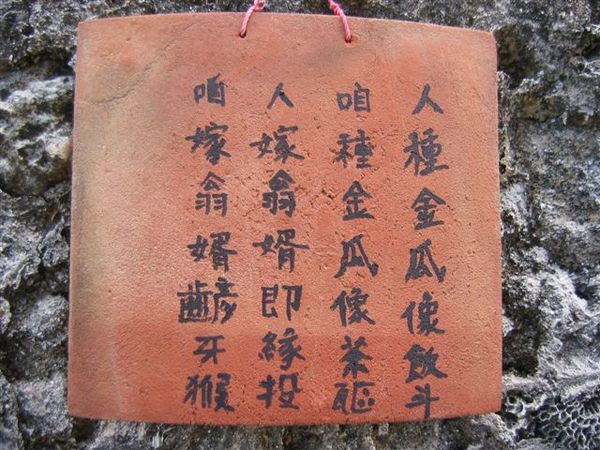 人種金瓜像飯斗
咱種金瓜像茶甌
人嫁翁婿即緣投
咱嫁翁婿齴牙猴